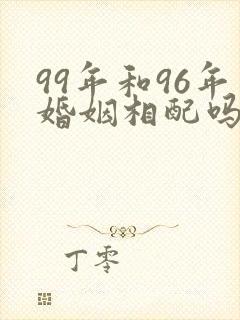 99年和96年
婚姻相配吗
丁零